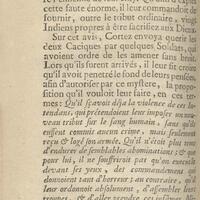 cette faute énorme, il leur commandoit de
fournir, outre le tribut ordinaire, vingt
Indiens propres à être sacrifiez aux Dieux.
Sur cet avis, Cortez envoya querir les
deux Caciques par quelques Soldats, qui
avoient ordre de les amener sans bruit.
Lors qu'ils furent arrivés, il leur fit croire
qu'il avoit penetré le fond de leurs pensées,
afin d'autoriser par ce mystere, la propo-
sition qu'il vouloit leur faire, en ces ter-
mes: Qu'il sçavoit déja la violence de ces In-
tendans, qui prétendoient leur imposer un nou-
veau tribut sur le sang humain, sans qu'ils
eussent commis aucun crime, mais seulement
reçu & logé son armée. Qu'il n'étoit plus tems
d'endurer de semblables abominations: & que
pour lui, il ne souffriroit pas qu'on executât
devant ses yeux, des commandemens qui
donnoient tant d'horreur; au contraire, qu'il
leur ordonnoit absolument, d'assembler leurs
troupes, & d'aller prendre ces